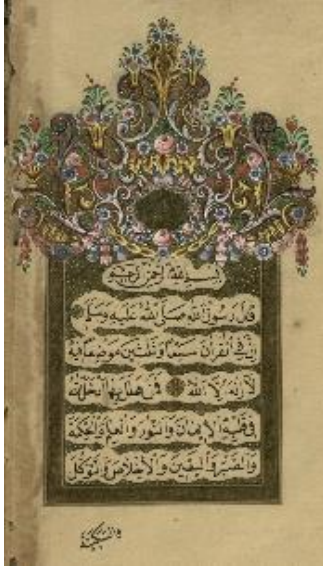 بسم الله الرحمن الرحيم
قال رسول الله صلى الله عليه وسلم
ان في القران سبعا وثلثين موضعا فيه
لا اله الا الله فمن ادخل الله
في قلبه الايمان والنور والعلم والحكمة
والصبر واليقين والاخلاص والتوكل